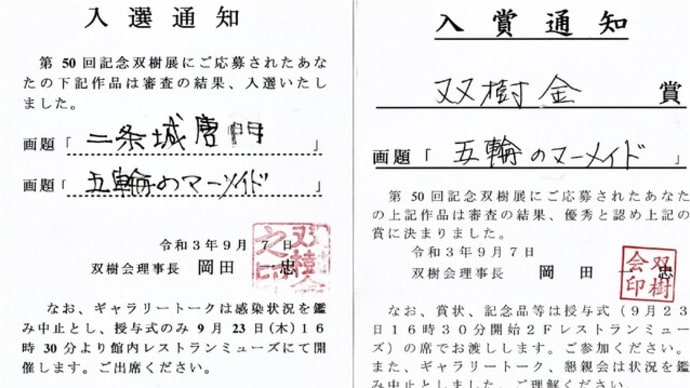 入選通知
第50回記念双樹展にご応募されたあな
たの下記作品は審査の結果、入選いたし
ました。
画題「二条城唐門」
画題「五輪のマーメイド」
令和3年9月7日
双樹会理事長 岡田一忠
双樹会之印
なお、ギャラリートークは感染状況を鑑
み中止とし、授与式のみ9月23日(木)16
時30分より館内レストランミューズにて開
催します。ご出席ください。
入賞通知
双樹金 賞
画題「五輪のマーメイド」
第50回記念双樹展にご応募されたあなた
の上記作品は審査の結果、優秀と認め上記の
賞に決まりました。
令和3年9月7日
双樹会理事長 岡田一忠
双樹会印
なお、賞状、記念品等は授与式(9月23
日16時30分開始2Fレストランミュー
ズ)の席でお渡しします。ご参加ください。
また、ギャラリートーク、懇親会は状況に鑑
み中止としました。ご理解ください。